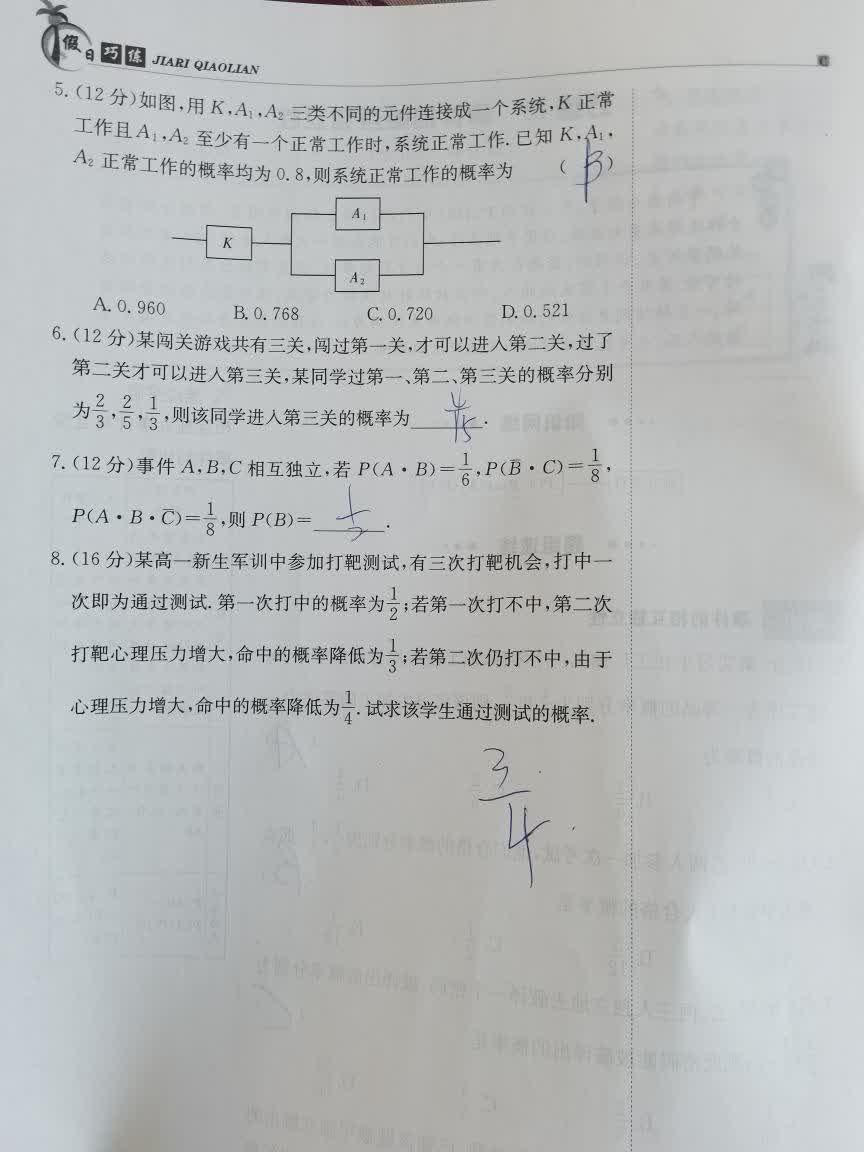 假日巧练 JIARI QIAOLIAN
5.(12分)如图,用K,A₁,A₂三类不同的元件连接成一个系统,K正常
工作且A₁,A₂至少有一个正常工作时,系统正常工作.已知K,A₁,
A₂正常工作的概率均为0.8,则系统正常工作的概率为 (B)
A₁
K
A₂
A. 0.960 B. 0.768 C. 0.720 D. 0.521
6.(12分)某闯关游戏共有三关,闯过第一关,才可以进入第二关,过了
第二关才可以进入第三关,某同学过第一、第二、第三关的概率分别
为2/3,2/5,1/3,则该同学进入第三关的概率为 4/15.
7.(12分)事件A,B,C相互独立,若P(A·B)=1/6,P(B̅·C)=1/8,
P(A·B·C̅)=1/8,则P(B)= 1/2.
8.(16分)某高一新生军训中参加打靶测试,有三次打靶机会,打中一
次即为通过测试.第一次打中的概率为1/2;若第一次打不中,第二次
打靶心理压力增大,命中的概率降低为1/3;若第二次仍打不中,由于
心理压力增大,命中的概率降低为1/4.试求该学生通过测试的概率.
3/4